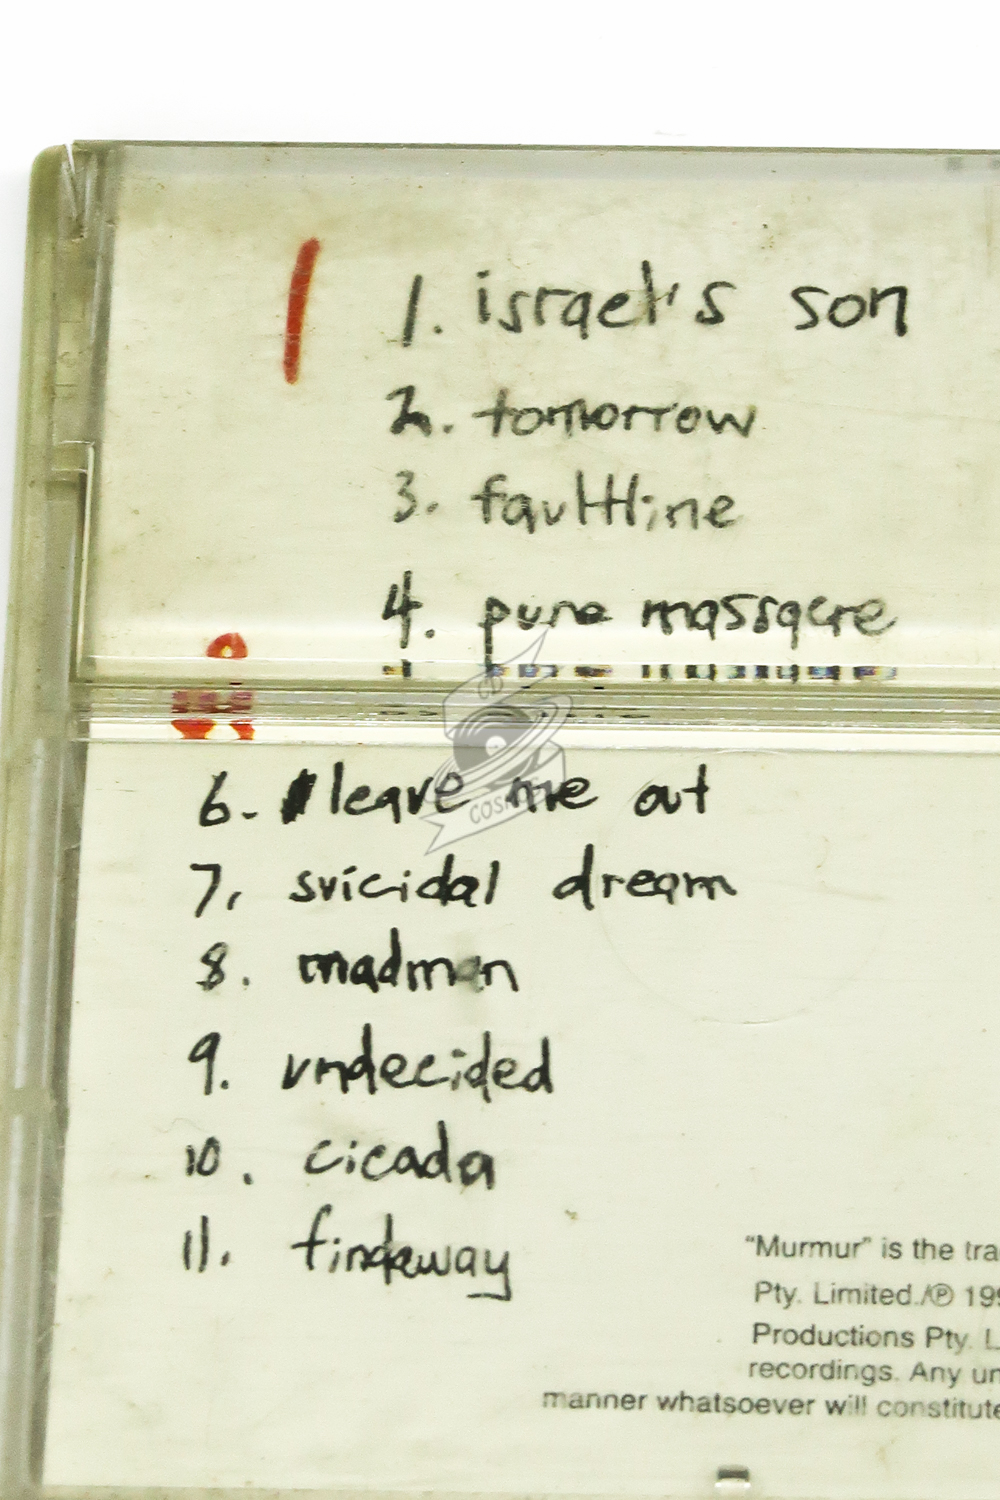 1. israel's son
2. tomorrow
3. faultline
4. pure massacre
CD
COSMOS
6. leave me out
7. suicidal dream
8. madman
9. undecided
10. cicada
11. findaway
"Murmur" is the tra
Pty. Limited./℗ 199
Productions Pty. L
recordings. Any un
manner whatsoever will constitute